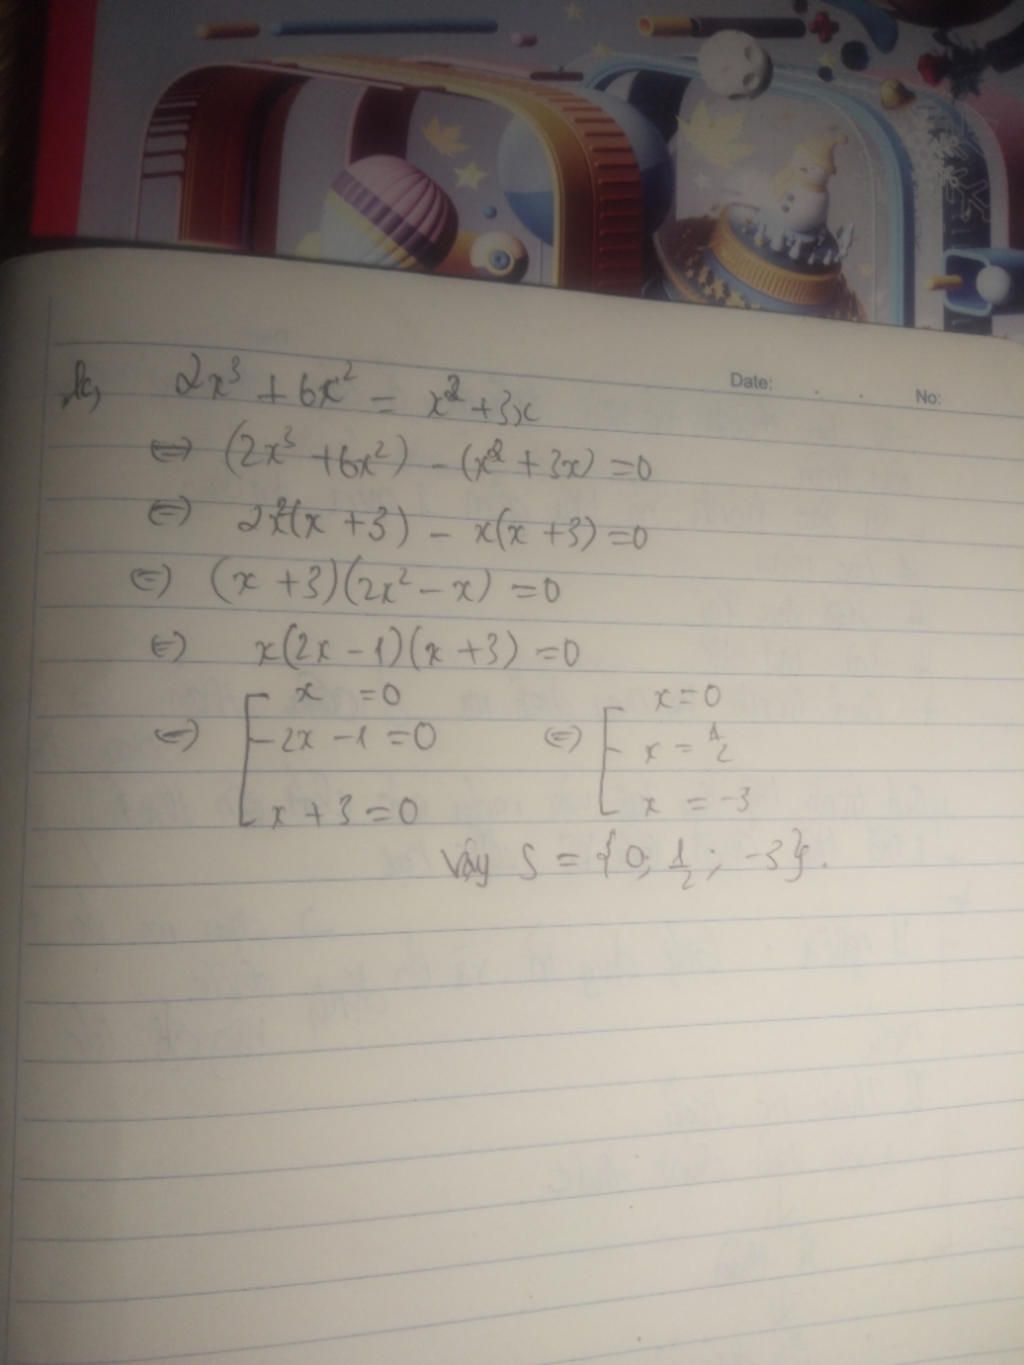 Date: . . No:
k, 2x³ + 6x² = x² + 3x
⇔ (2x³ + 6x²) - (x² + 3x) = 0
⇔ 2x²(x + 3) - x(x + 3) = 0
⇔ (x + 3)(2x² - x) = 0
⇔ x(2x - 1)(x + 3) = 0
⇔ [ x = 0 ⇔ [ x = 0
2x - 1 = 0 x = 1/2
x + 3 = 0 x = -3
Vậy S = {0; 1/2; -3}.